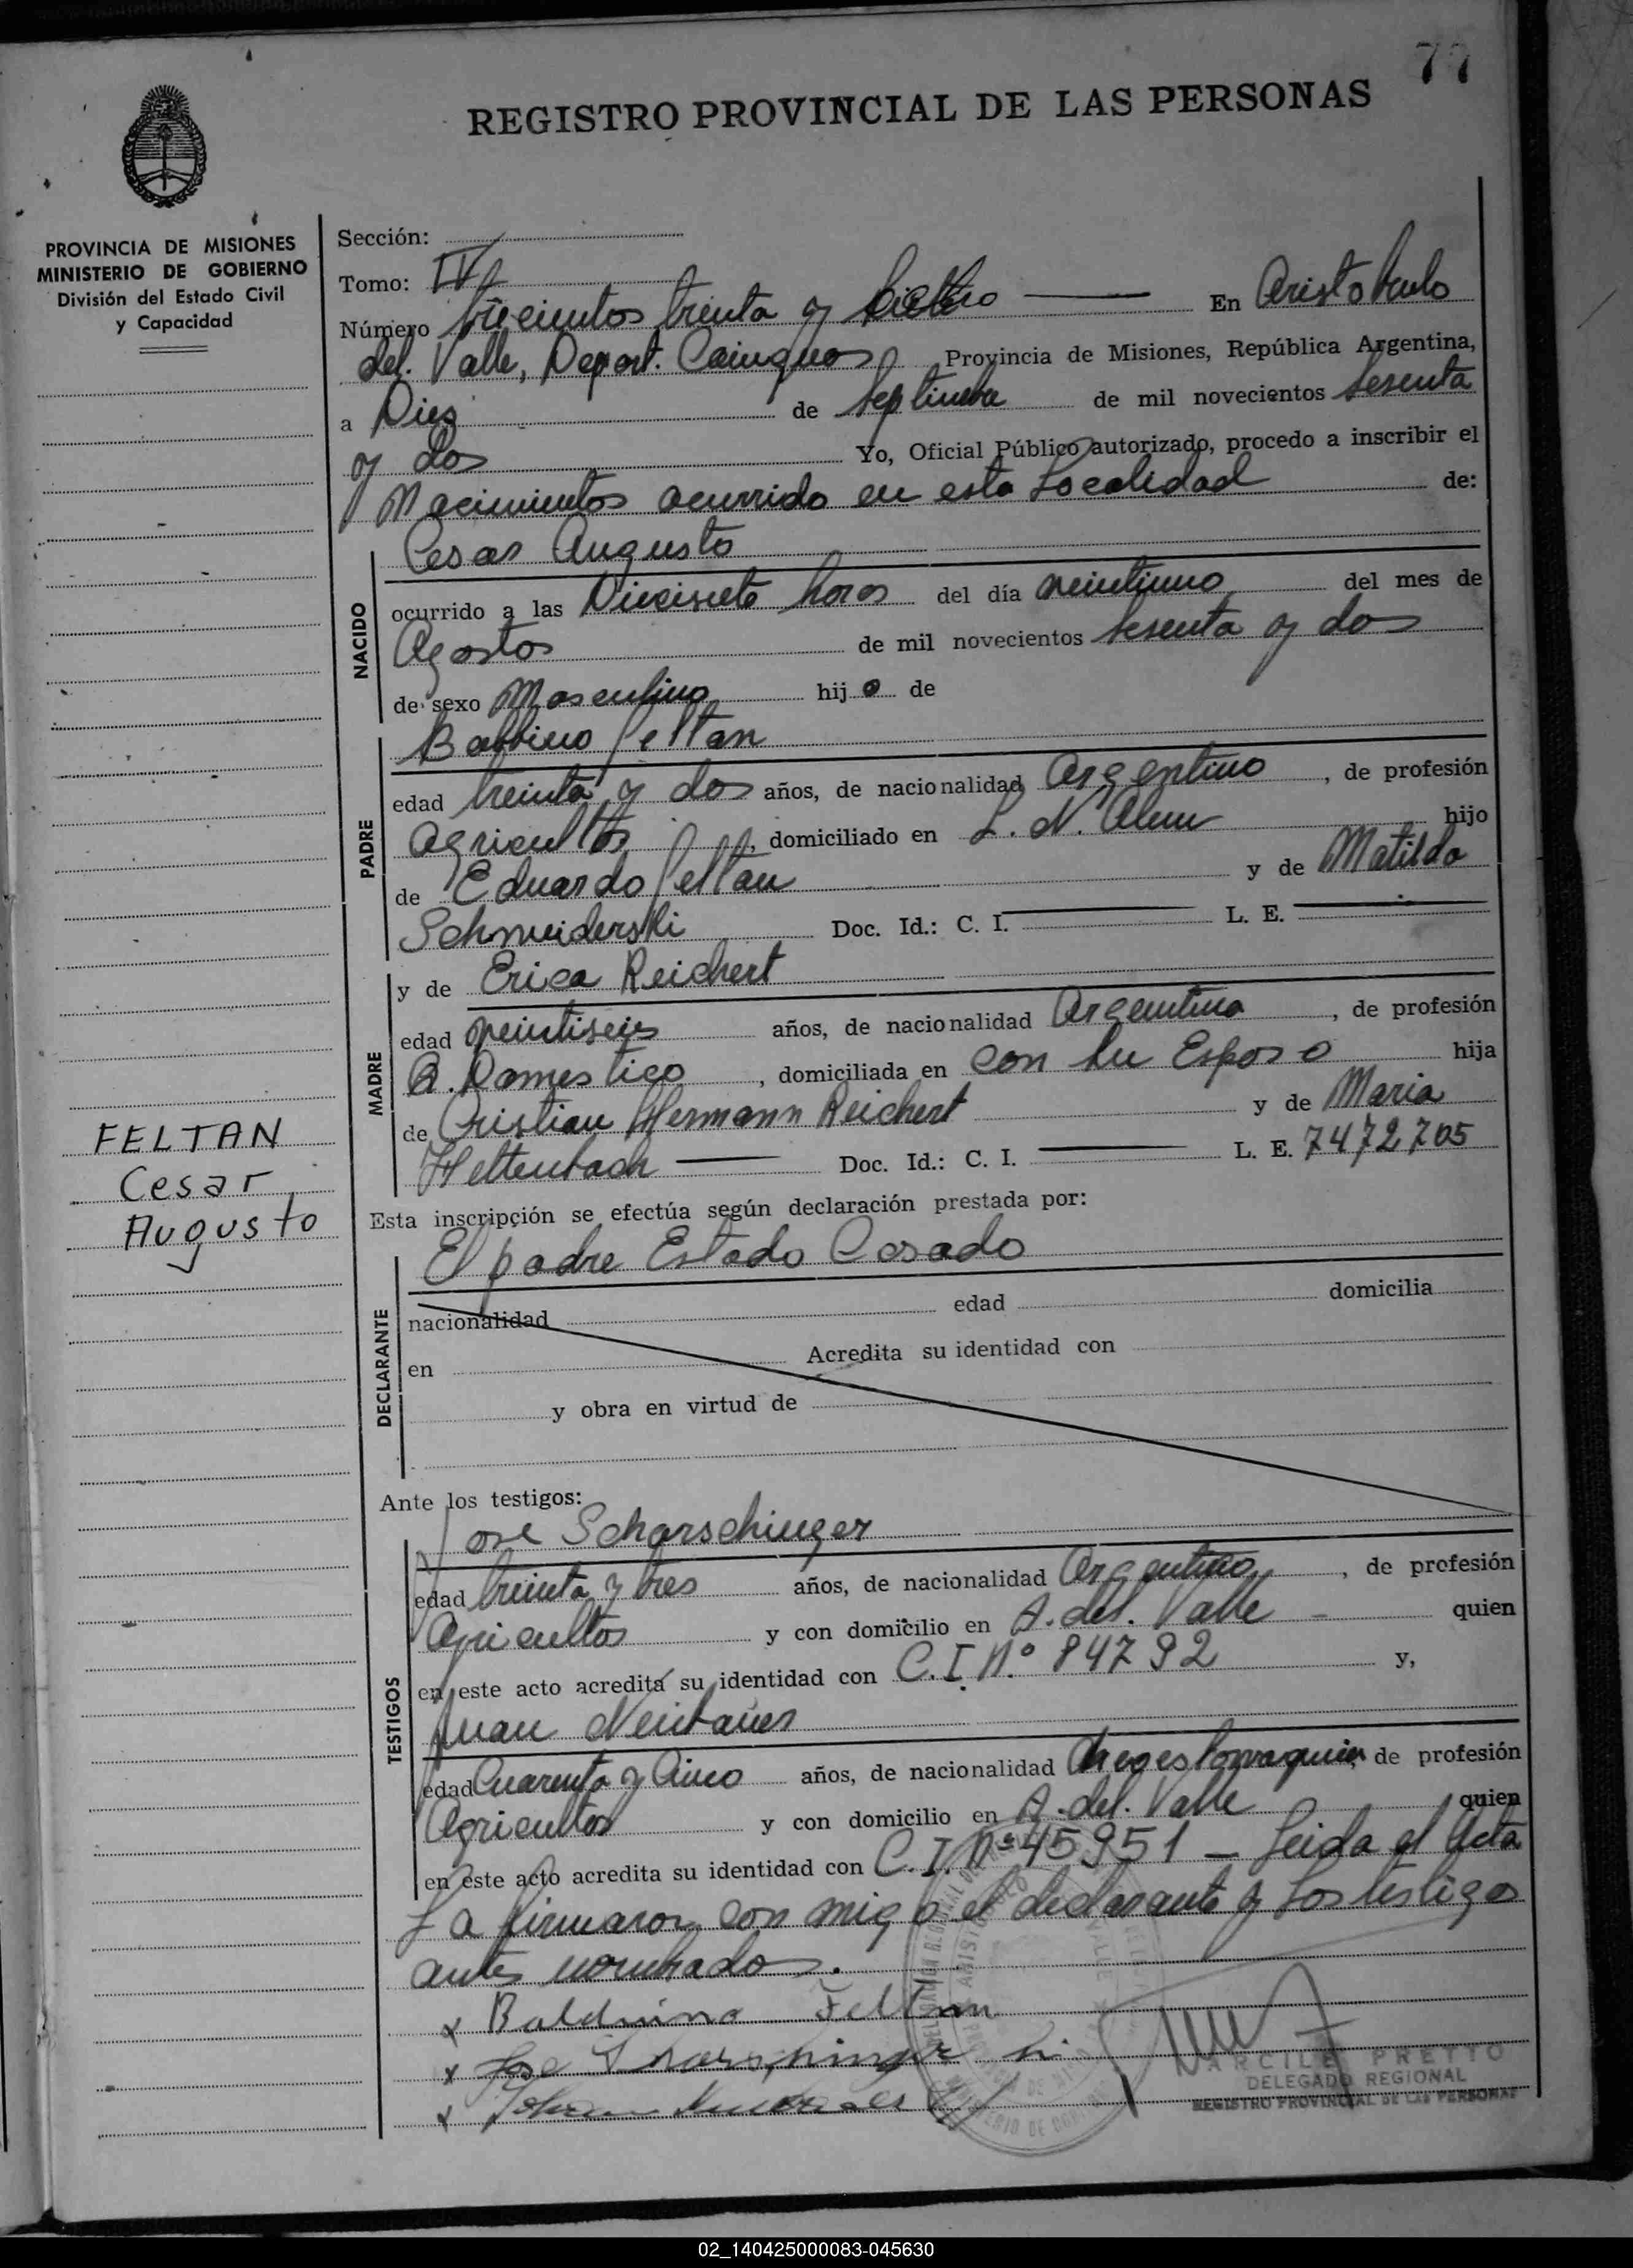 77
REGISTRO PROVINCIAL DE LAS PERSONAS
PROVINCIA DE MISIONES
MINISTERIO DE GOBIERNO
División del Estado Civil
y Capacidad
Sección:
Tomo: IV
Número trecientos treinta y En Aristobulo
del. Valle, Depart. Cainguas Provincia de Misiones, República Argentina,
a Dies de Septiembre de mil novecientos Sesenta
y dos Yo, Oficial Público autorizado, procedo a inscribir el
Nacimientos ocurrido en esta Localidad de:
Cesar Augusto
NACIDO
ocurrido a las Diecisiete horas del día veintiuno del mes de
Agostos de mil novecientos Sesenta y dos
de sexo Masculino hijo de
Feltan
PADRE
edad treinta y dos años, de nacionalidad Argentino, de profesión
Agricultor, domiciliado en L. N. Alem hijo
de Eduardo Feltan y de Matilda
Schmeiderski Doc. Id.: C. I. L. E.
y de Erica Reichert
MADRE
edad veintiseis años, de nacionalidad Argentina, de profesión
Domestico, domiciliada en con su Esposo hija
de Cristian Hermann Reichert y de Maria
Hettenbach Doc. Id.: C. I. L. E. 7472705
FELTAN
Cesar
Augusto
Esta inscripción se efectúa según declaración prestada por:
El padre Estado Casado
DECLARANTE
nacionalidad edad domicilia
en Acredita su identidad con
y obra en virtud de
Ante los testigos:
Jose Scharschinger
TESTIGOS
edad treinta y tres años, de nacionalidad Argentino, de profesión
Agricultor y con domicilio en A. del. Valle quien
en este acto acredita su identidad con C. I. N.º 84792 y,
Juan Neubauer
edad Cuarenta y Cinco años, de nacionalidad de profesión
Agricultor y con domicilio en A. del. Valle quien
en este acto acredita su identidad con C. I. Nº 45951 - Leida el Acta
La firmaron con migo el declarante y Los testigos
antes nombrados.
x Balduino Feltan
x Jose
x
PRETTO
DELEGADO REGIONAL
REGISTRO PROVINCIAL DE LAS PERSONAS
02_140425000083-045630